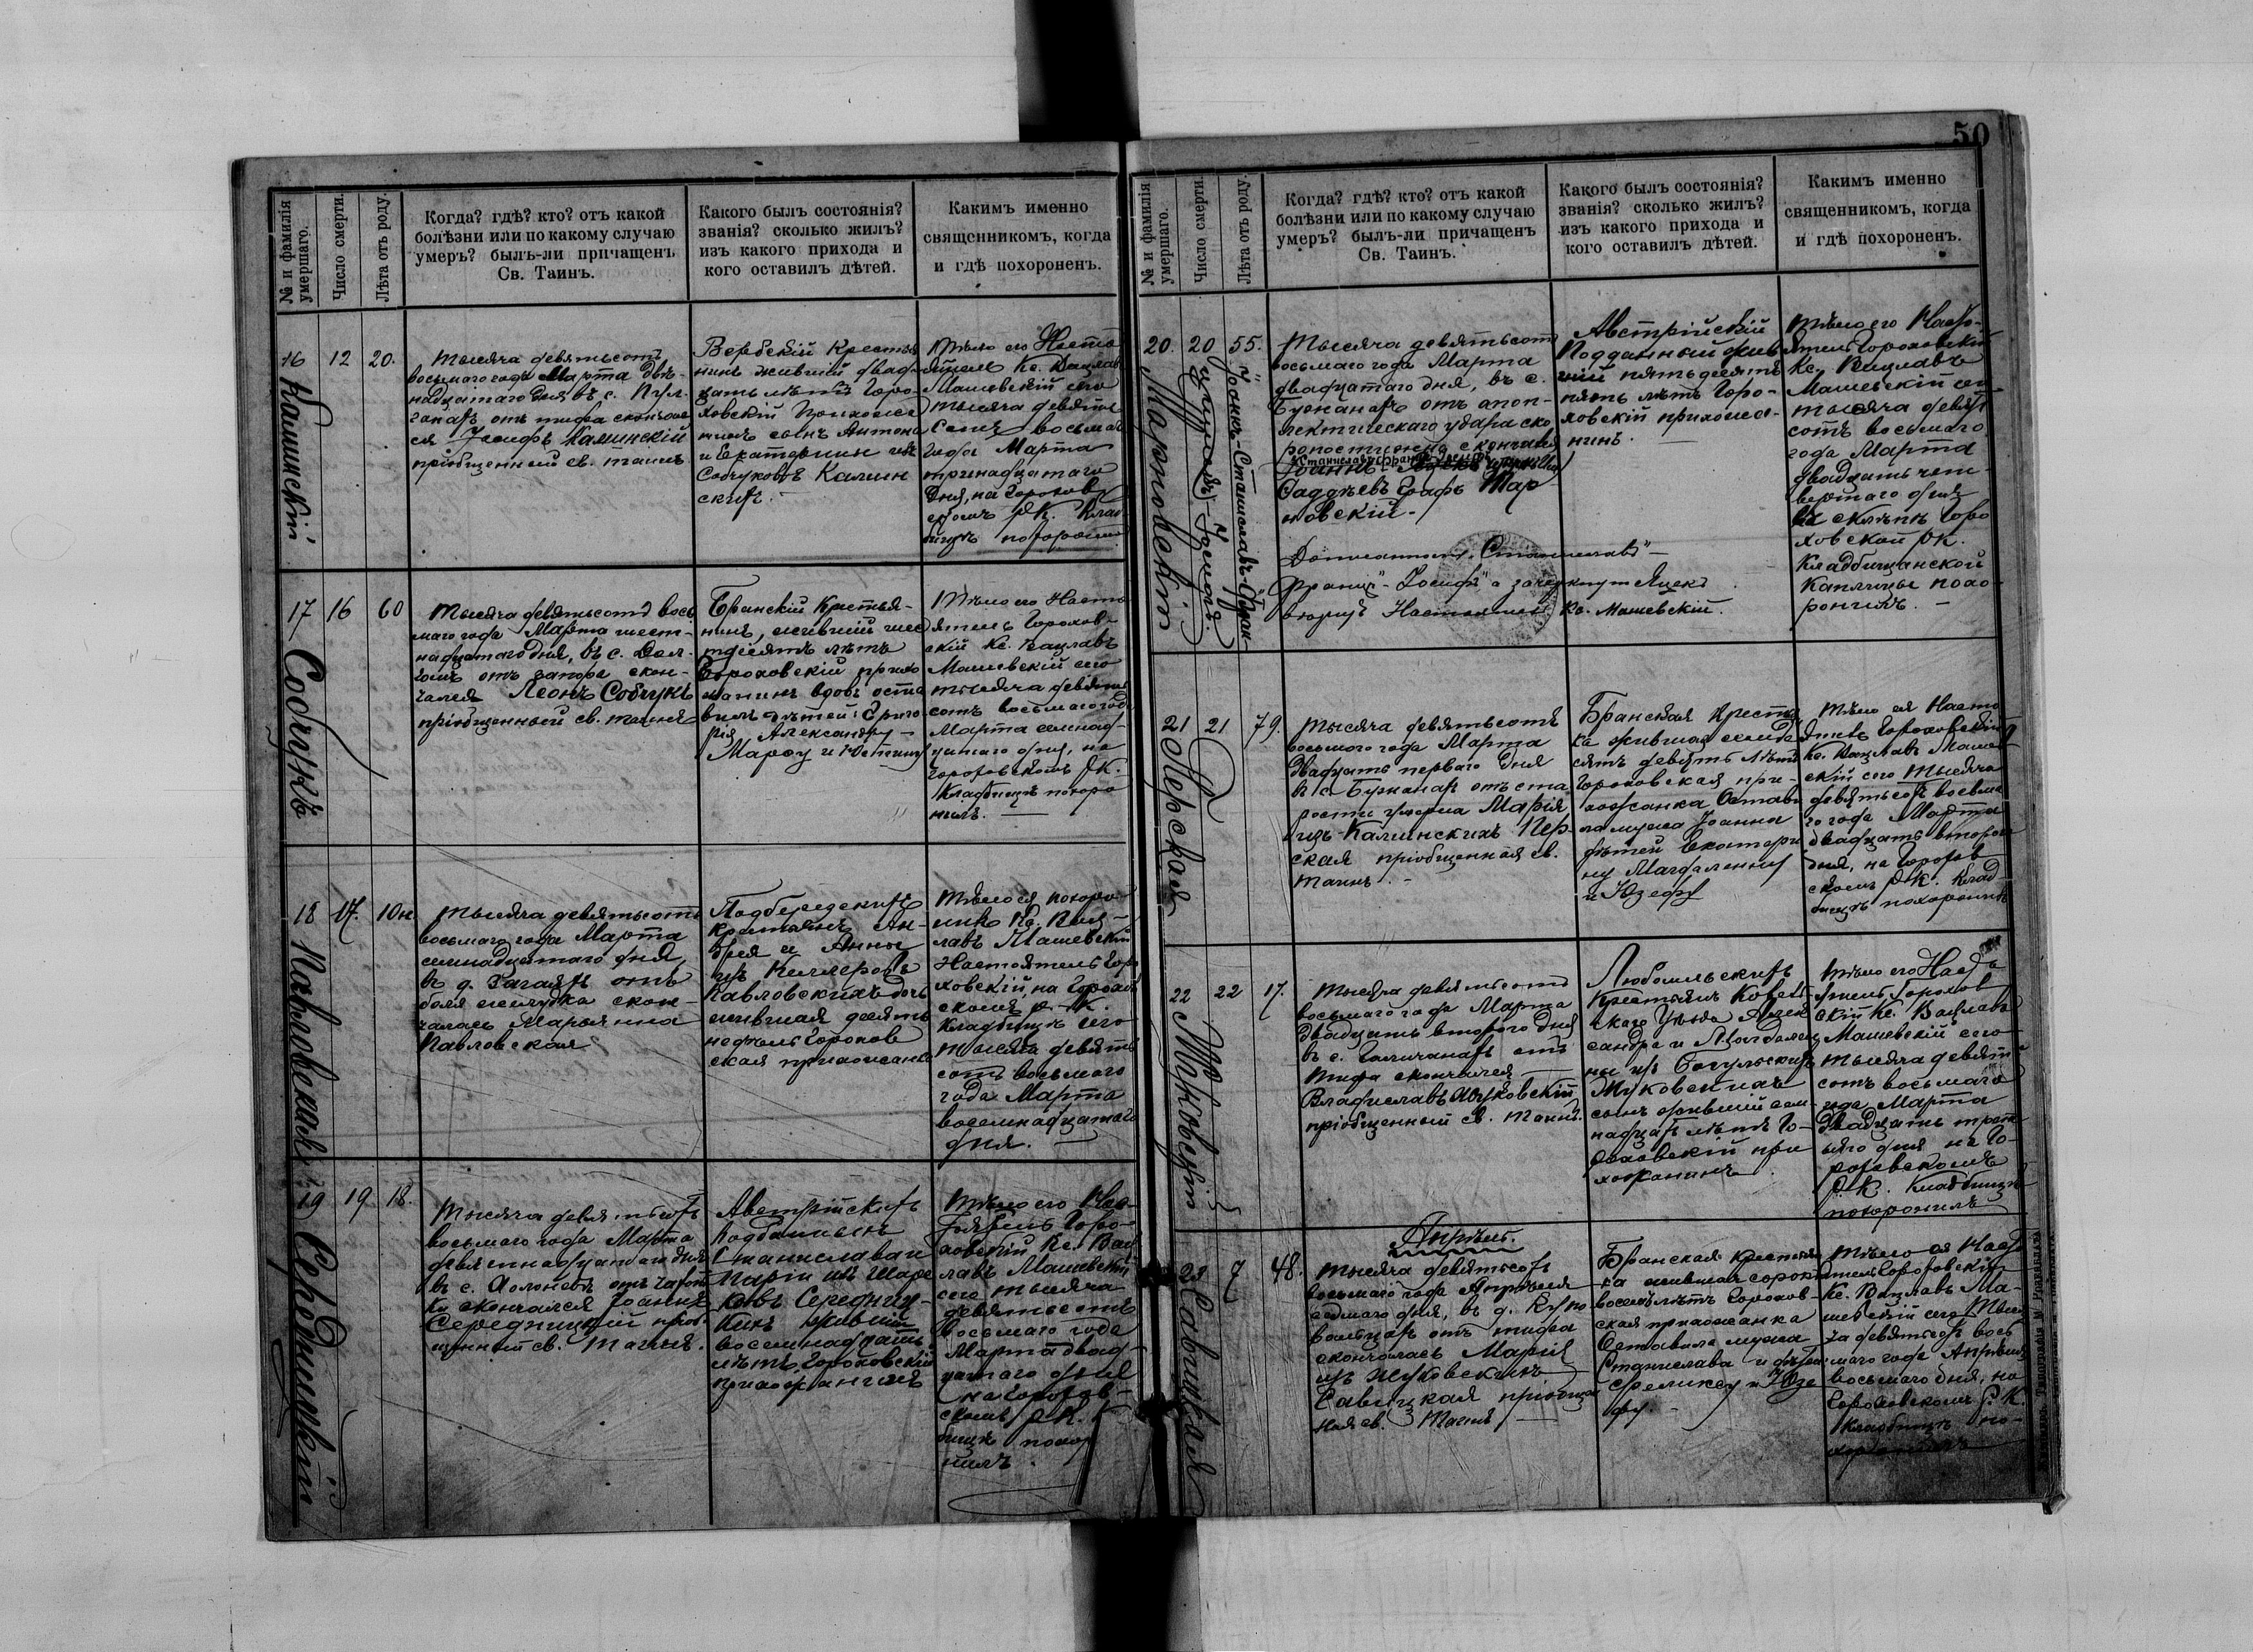 50
№ и фамилія умершаго.
Число смерти.
Лѣта отъ роду.
Когда? гдѣ? кто? отъ какой
болѣзни или по какому случаю
умеръ? былъ-ли причащенъ
Св. Таинъ.
Какого былъ состоянія?
званія? сколько жилъ?
изъ какого прихода и
кого оставилъ дѣтей.
Какимъ именно
священникомъ, когда
и гдѣ похороненъ.
16
Калинскій
12
20.
Тысяча девятьсотъ
восьмаго года Марта двѣ-
надцатаго дня въ с.
отъ тифа скончал
ся Іосифъ Калинскій
пріобщенный св. таинъ
Вербскій Крестья
нинъ жившій двад-
цать лѣтъ Горо-
ховскій прихожа
нинъ сынъ Антона
и Екатерины изъ
Собчуковъ Калин
скихъ.
Тѣло его Насто
ятель Кс. Вацлавъ
Машевскій сего
тысяча девять
сотъ восьмаго
года Марта
тринадцатаго
дня, на Горохов
скомъ р.К. клад
бищѣ похоронилъ
17
Собчукъ
16
60
Тысяча девятьсотъ вось
маго года Марта шест-
надцатаго дня, въ с.
отъ запора скон-
чался Леонъ Собчукъ
пріобщенный св. таинъ
Бранскій Крестья-
нинъ, жившій шес
тдесятъ лѣтъ
Гороховскій прихо
жанинъ вдовъ оста
вилъ дѣтей: Григо
рія, Александру -
Марѳу и Юстину
Тѣло его Насто
ятель Горохов-
скій Кс. Вацлавъ
Машевскій сего
тысяча девять
сотъ восьмаго года
Марта семнад-
цатаго дня, на
Гороховскомъ р.К.
Кладбищѣ похоро
нилъ.
18
Павловская
17.
10н
Тысяча девятьсотъ
восьмаго года Марта
семнадцатаго дня,
въ д. отъ
боля желудка скон-
чалась Марьянна
Павловская
Подберезскихъ
крестьянъ Ан-
дрея и Анны
изъ Келлеровъ
Павловскихъ дочь
жившая десять
недѣль Горохов
ская прихожанка
Тѣло ея похоро-
нилъ Кс. Вац-
лавъ Машевскій
Настоятель Горо
ховскій, на Горохов
скомъ р.-К.
Кладбищѣ сего
тысяча девять
сотъ восьмаго
года Марта
восемнадцатаго
дня.
19
Середницкій
19
18.
Тысяча девятьсотъ
восьмаго года Марта
девятнадцатаго дня
въ с. отъ
скончался Іоаннъ
Середницкій пріоб-
щенный св. Таинъ.
Австрійскихъ
подданныхъ
Станислава и
Маріи изъ
Середниц-
кихъ жившій
восемнадцать
лѣтъ Гороховскій
прихожанинъ
Тѣло его Нас-
тоятель Горо-
ховскій Кс. Вац
лавъ Машевскій
сего тысяча
девятьсотъ
восьмаго года
Марта двад-
цатаго дня
на Горохов-
скомъ р.К. К
бищѣ похор
нилъ.
20.
Тарновскій
Іоаннъ-Станиславъ-Фран-
цишекъ-Іосифъ.
20
55.
Тысяча девятьсотъ
восьмаго года Марта
двадцатаго дня, въ с.
Бужанахъ отъ апоп-
лектическаго удара ско
ропостижно скончался
Станиславъ Францъ Іосифъ
Іоаннъ-
Фаддѣевъ Графъ Тар
новскій.
Дописанному „Станиславъ" -
„Францъ" - Іосифъ" а зачеркнут Яцекъ
вѣрить Настоятель Кс. Машевскій.
Австрійскій
Подданный жив
шій пятьдесятъ
пять лѣтъ Горо-
ховскій прихожа-
нинъ.
Тѣло его Насто-
ятель Гороховскій
Кс. Вацлавъ
Машевскій сего
тысяча девять
сотъ восьмаго
года Марта
двадцать чет-
вертаго дня
въ склѣпѣ Горо
ховской рк.
Кладбищанской
Каплицы похо-
ронилъ.
21
Перская
21
79.
Тысяча девятьсотъ
восьмаго года Марта
двадцать перваго дня
въ с. Бужанахъ отъ ста
рости умерла Марія
изъ Калинскихъ Пер-
ская пріобщенная св.
таинъ.
Бранская крестьян
ка жившая семьде
сятъ девять лѣтъ
Гороховская при-
хожанка Остави
ла мужа Іоанна
дѣтей Екатери
ну Магдалену
и Юзефу
Тѣло ея Насто
ятель Гороховскій
Кс. Вацлавъ Машев
скій сего тысяча
девятьсотъ восьма
го года Марта
двадцать втораго
дня, на Горохов
скомъ р.К. клад-
бищѣ похоронилъ
22
Жуковскій
22
17.
Тысяча девятьсотъ
восьмаго года Марта
двадцать втораго дня
въ с. Галичанахъ отъ
тифа скончался
Владиславъ Жуковскій
пріобщенный св. таинъ.
Любомльскихъ
крестьянъ Ковель-
скаго уѣзда Алек
сандра и Магдале
ны изъ Богульскихъ
Жуковскихъ
сынъ жившій сем-
надцать лѣтъ Го-
роховскій при
хожанинъ
Тѣло его Насто
ятель Горохов
скій Кс. Вацлавъ
Машевскій сего
тысяча девять
сотъ восьмаго
года Марта
двадцать треть
яго дня на Го-
роховскомъ
р.К. Кладбищѣ
похоронилъ
Апрѣль.
23
Савицкая
7
48.
Тысяча девятьсотъ
восьмаго года Апрѣля
седьмаго дня, въ д.
отъ тифа
скончалась Марія
изъ Жуковскихъ
Савицкая пріобщен
ная св. Таинъ
Бранская крестьян
ка жившая сорокъ
восемь лѣтъ Горохов-
ская прихожанка
Оставила мужа
Станислава и дѣтей
Феликсу и Юзе
фу.
Тѣло ея Насто
ятель Гороховскій
Кс. Вацлавъ Ма-
шевскій сего Тыся
ча девятьсотъ вось
маго года Апрѣля
восьмаго дня, на
Гороховскомъ р.К.
кладбищѣ по-
хоронилъ